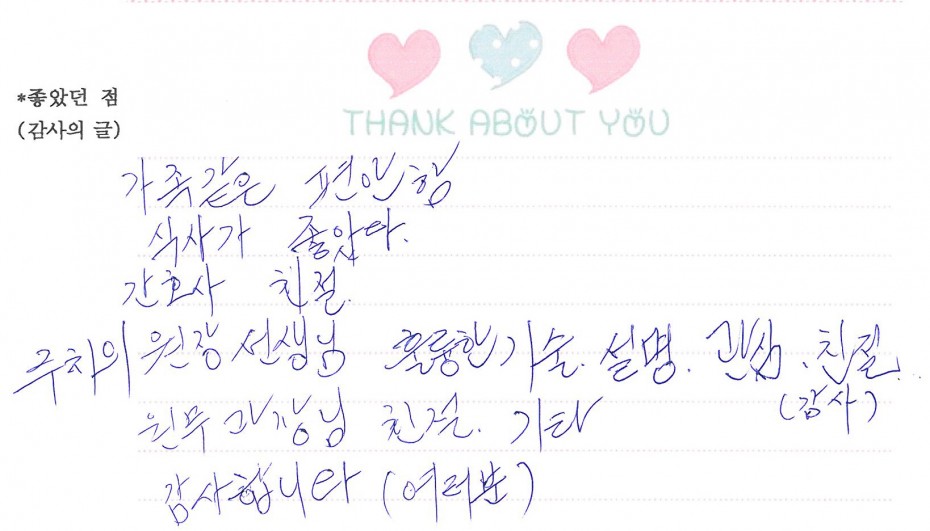 THANK ABOUT YOU
*좋았던 점
(감사의 글)
가족같은 편안함
식사가 좋았다.
간호사 친절.
주치의 원장 선생님 훌륭한 기술. 설명. 관심. 친절.
(감사)
원무과장님 친절. 기타
감사합니다 (여러분)